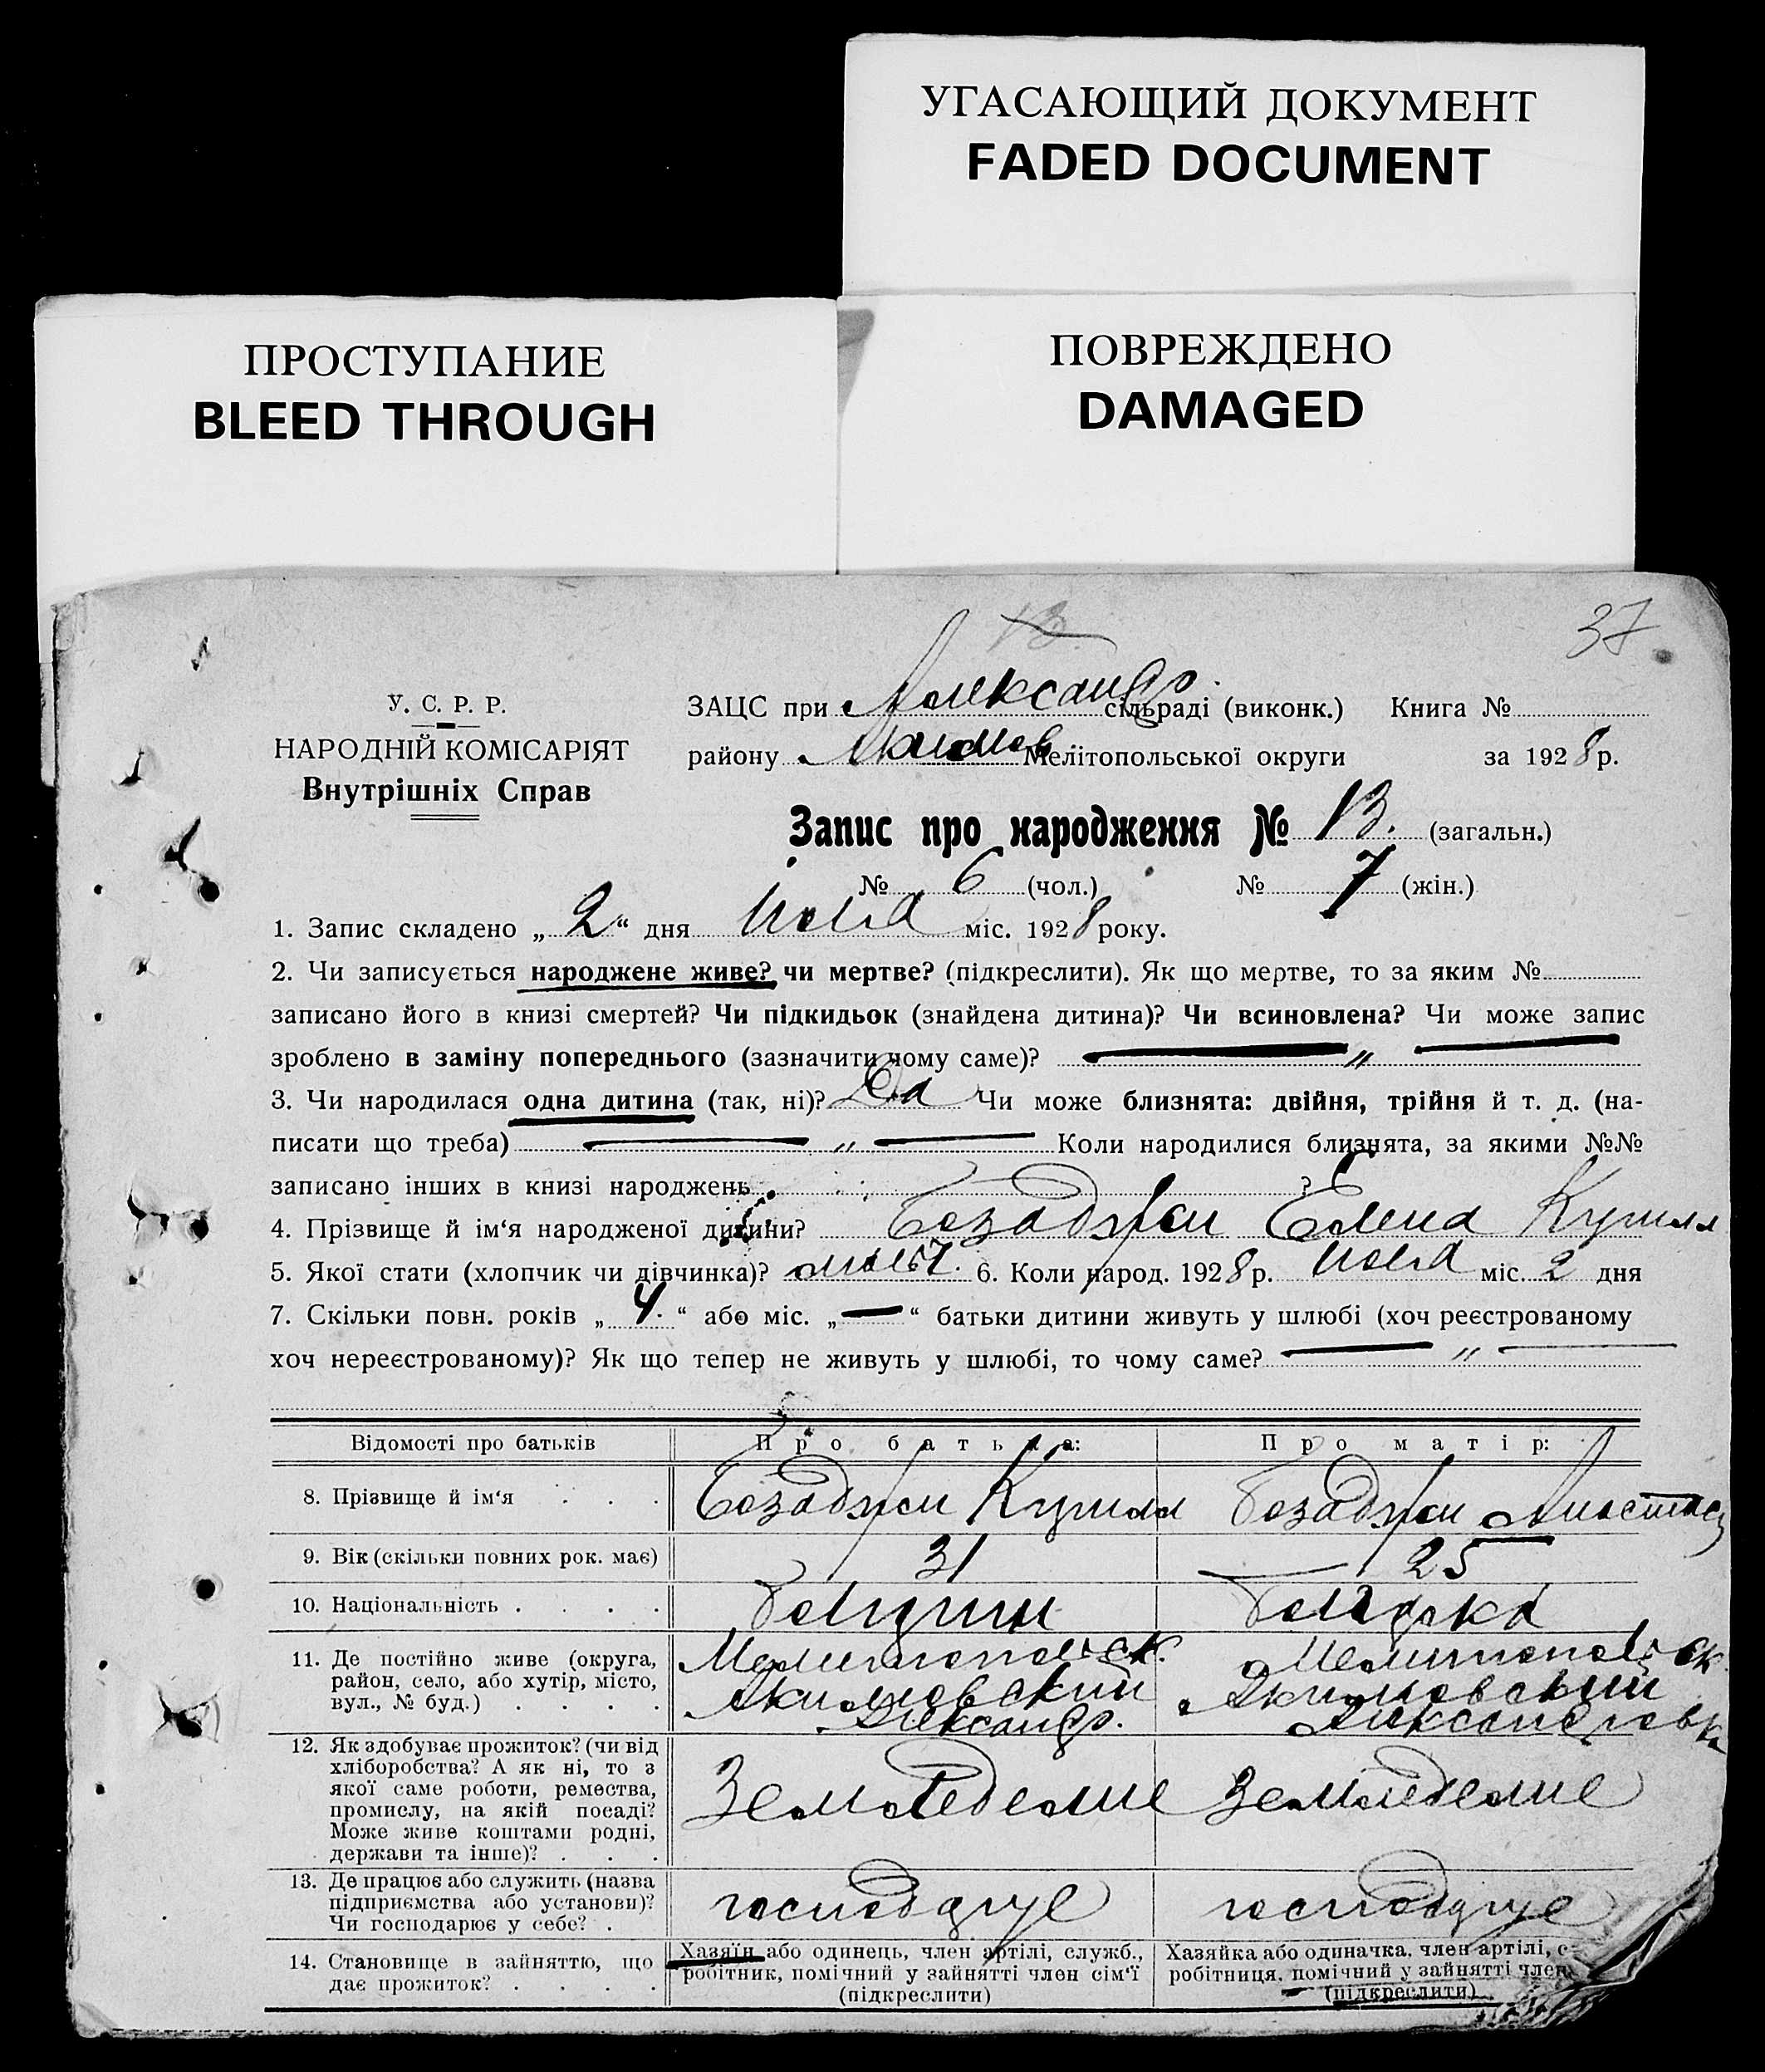 УГАСАЮЩИЙ ДОКУМЕНТ
FADED DOCUMENT
ПРОСТУПАНИЕ
BLEED THROUGH
ПОВРЕЖДЕНО
DAMAGED
13.
37
У. С. Р. Р.
НАРОДНІЙ КОМІСАРІЯТ
Внутрішніх Справ
ЗАЦС при Александр. сільраді (виконк.) Книга №
району Акимов. Мелітопольської округи за 1928 р.
Запис про народження № 13. (загальн.)
№ 6 (чол.) № 7 (жін.)
1. Запис складено „ 2 “ дня міс. 1928 року.
2. Чи записується народжене живе? чи мертве? (підкреслити). Як що мертве, то за яким №
записано його в книзі смертей? Чи підкидьок (знайдена дитина)? Чи всиновлена? Чи може запис
зроблено в заміну попереднього (зазначити чому саме)? — „ —
3. Чи народилася одна дитина (так, ні)? Да Чи може близнята: двійня, трійня й т. д. (на-
писати що треба) — „ — Коли народилися близнята, за якими №№
записано інших в книзі народжень ?
4. Прізвище й ім‘я народженої дитини? Бозаджи Елена Кирилл
5. Якої стати (хлопчик чи дівчинка)? 6. Коли народ. 1928 р. міс. 2 дня
7. Скільки повн. років „ 4. “ або міс. „ — “ батьки дитини живуть у шлюбі (хоч реєстрованому
хоч нереєстрованому)? Як що тепер не живуть у шлюбі, то чому саме? — „ —
Відомості про батьків Про батька: Про матір:
8. Прізвище й ім‘я . . . Бозаджи Кирилл Бозаджи Анастас
9. Вік (скільки повних рок. має) 31 — 25
10. Національність . . . . Болгарин Болгарка
11. Де постійно живе (округа, Мелитопольск. Мелитопольск.
район, село, або хутір, місто, Акимовский Акимовский
вул., № буд.) . . . . Александр. Александровка
12. Як здобуває прожиток? (чи від
хліборобства? А як ні, то з
якої саме роботи, ремества, Земледелие Земледелие
промислу, на якій посаді?
Може живе коштами родні,
держави та інше)? . . .
13. Де працює або служить (назва
підприємства або установи)? господарує господарує
Чи господарює у себе? .
14. Становище в зайняттю, що Хазяїн або одинець, член артілі, служб., Хазяйка або одиначка, член артілі, с
дає прожиток? . . . . робітник, помічний у зайнятті член сім‘ї робітниця, помічний у зайнятті член
(підкреслити) (підкреслити)